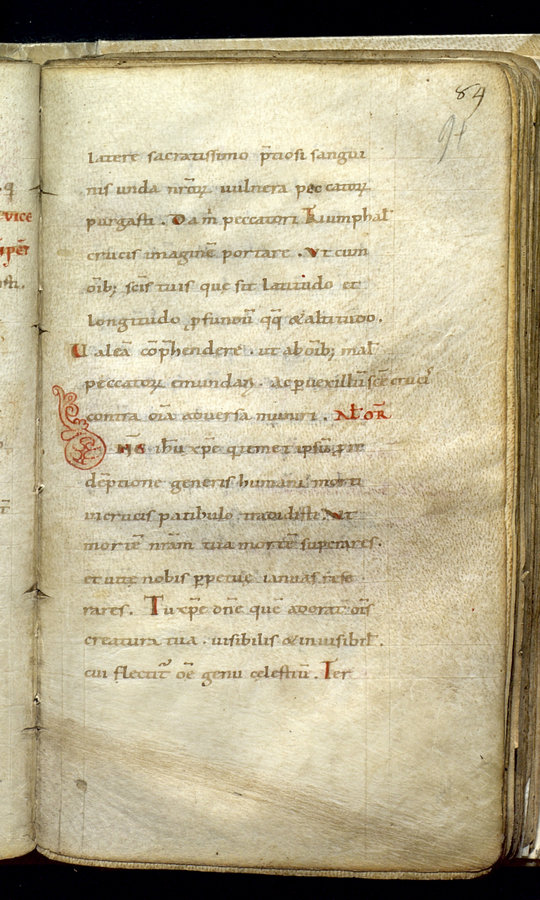 84
94
latere sacratissimo p̄tiosi sangui
nis unda nr̄oꝝ uulnera peccatoꝝ
purgasti. Da m̄ peccatori triumphal̄
crucis imaginē portare. Vt cum
oīb; sc̄is tuis que sit latitudo et
longitudo ꝓfundū qq̨ & altitudo.
Valeā cōp̄hendere. ut ab oīb; mal̄
peccatoꝝ emundari. ac ꝑ uexillū sc̄e cruc̄
contra oīa aduersa muniri. Al̄ Or̄
Dn̄e ihū xp̄e qui
dēptione generis humani
in crucis patibulo tradidisti. Vt
mortē nr̄am tua morte superares.
et uite nobis ꝑpetuę ianuas rese
rares. Tu xp̄e dn̄e quē adorat om̄s
creatura tua. uisibilis & inuisibil̄.
cui flectit̄ om̄e genu cęlestiū. Ter
q̨